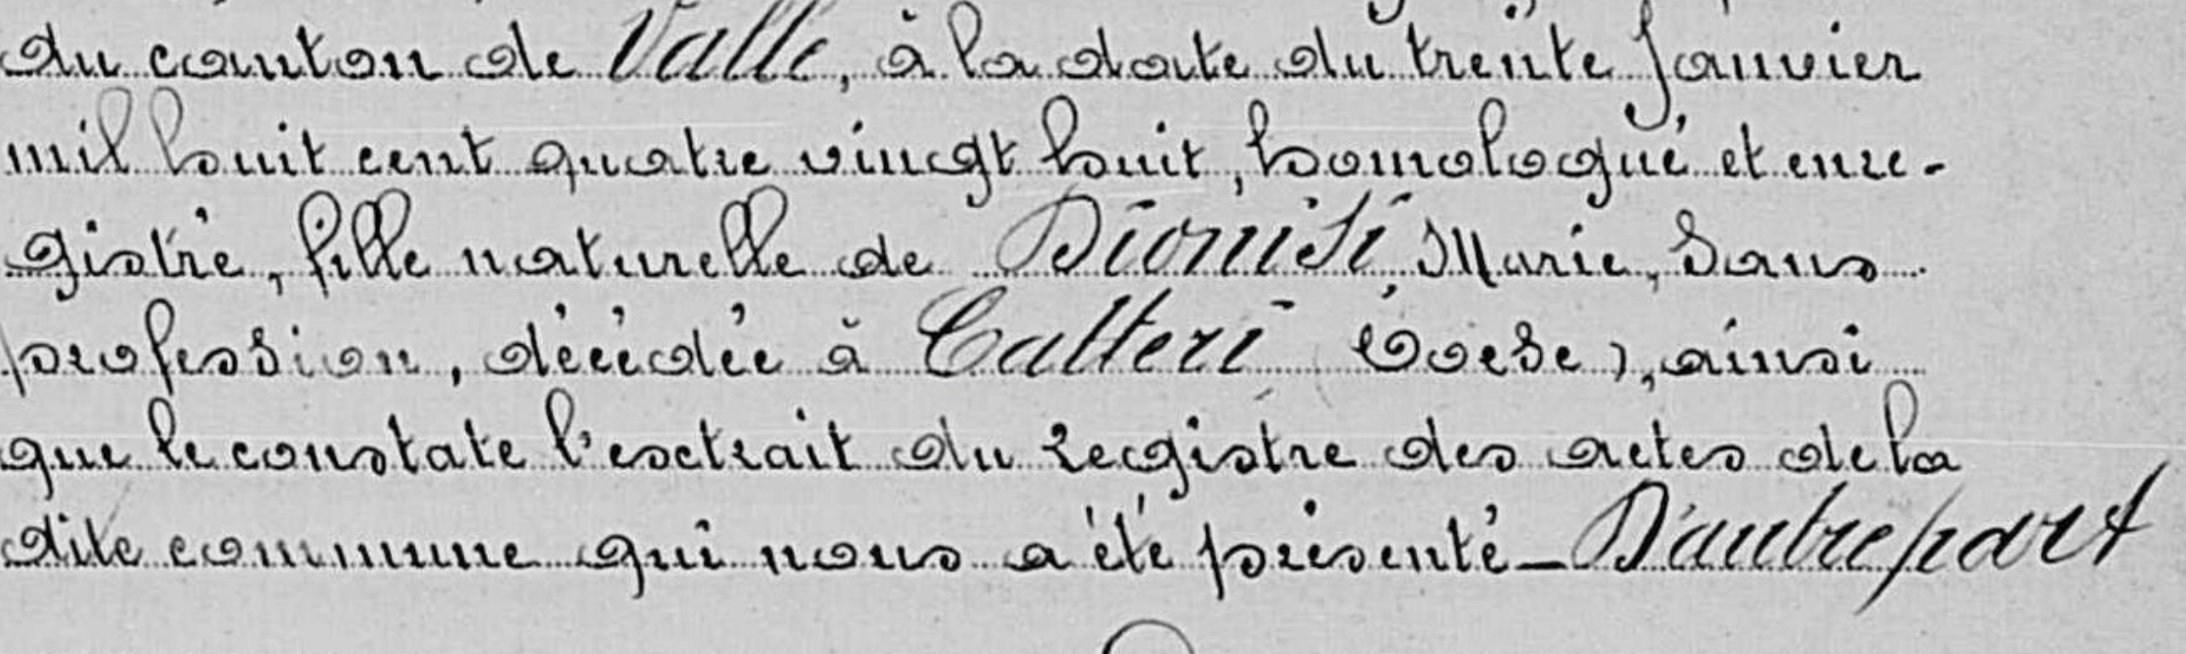 du canton de Valle, à la date du trente Janvier
mil huit cent quatre vingt huit, homologué et enre-
gistré, fille naturelle de Dionisi, Marie, Sans
profession, décédée à Catteri (Corse), ainsi
que le constate l'extrait du registre des actes de la
dite commune qui nous a été présenté — D'autre part